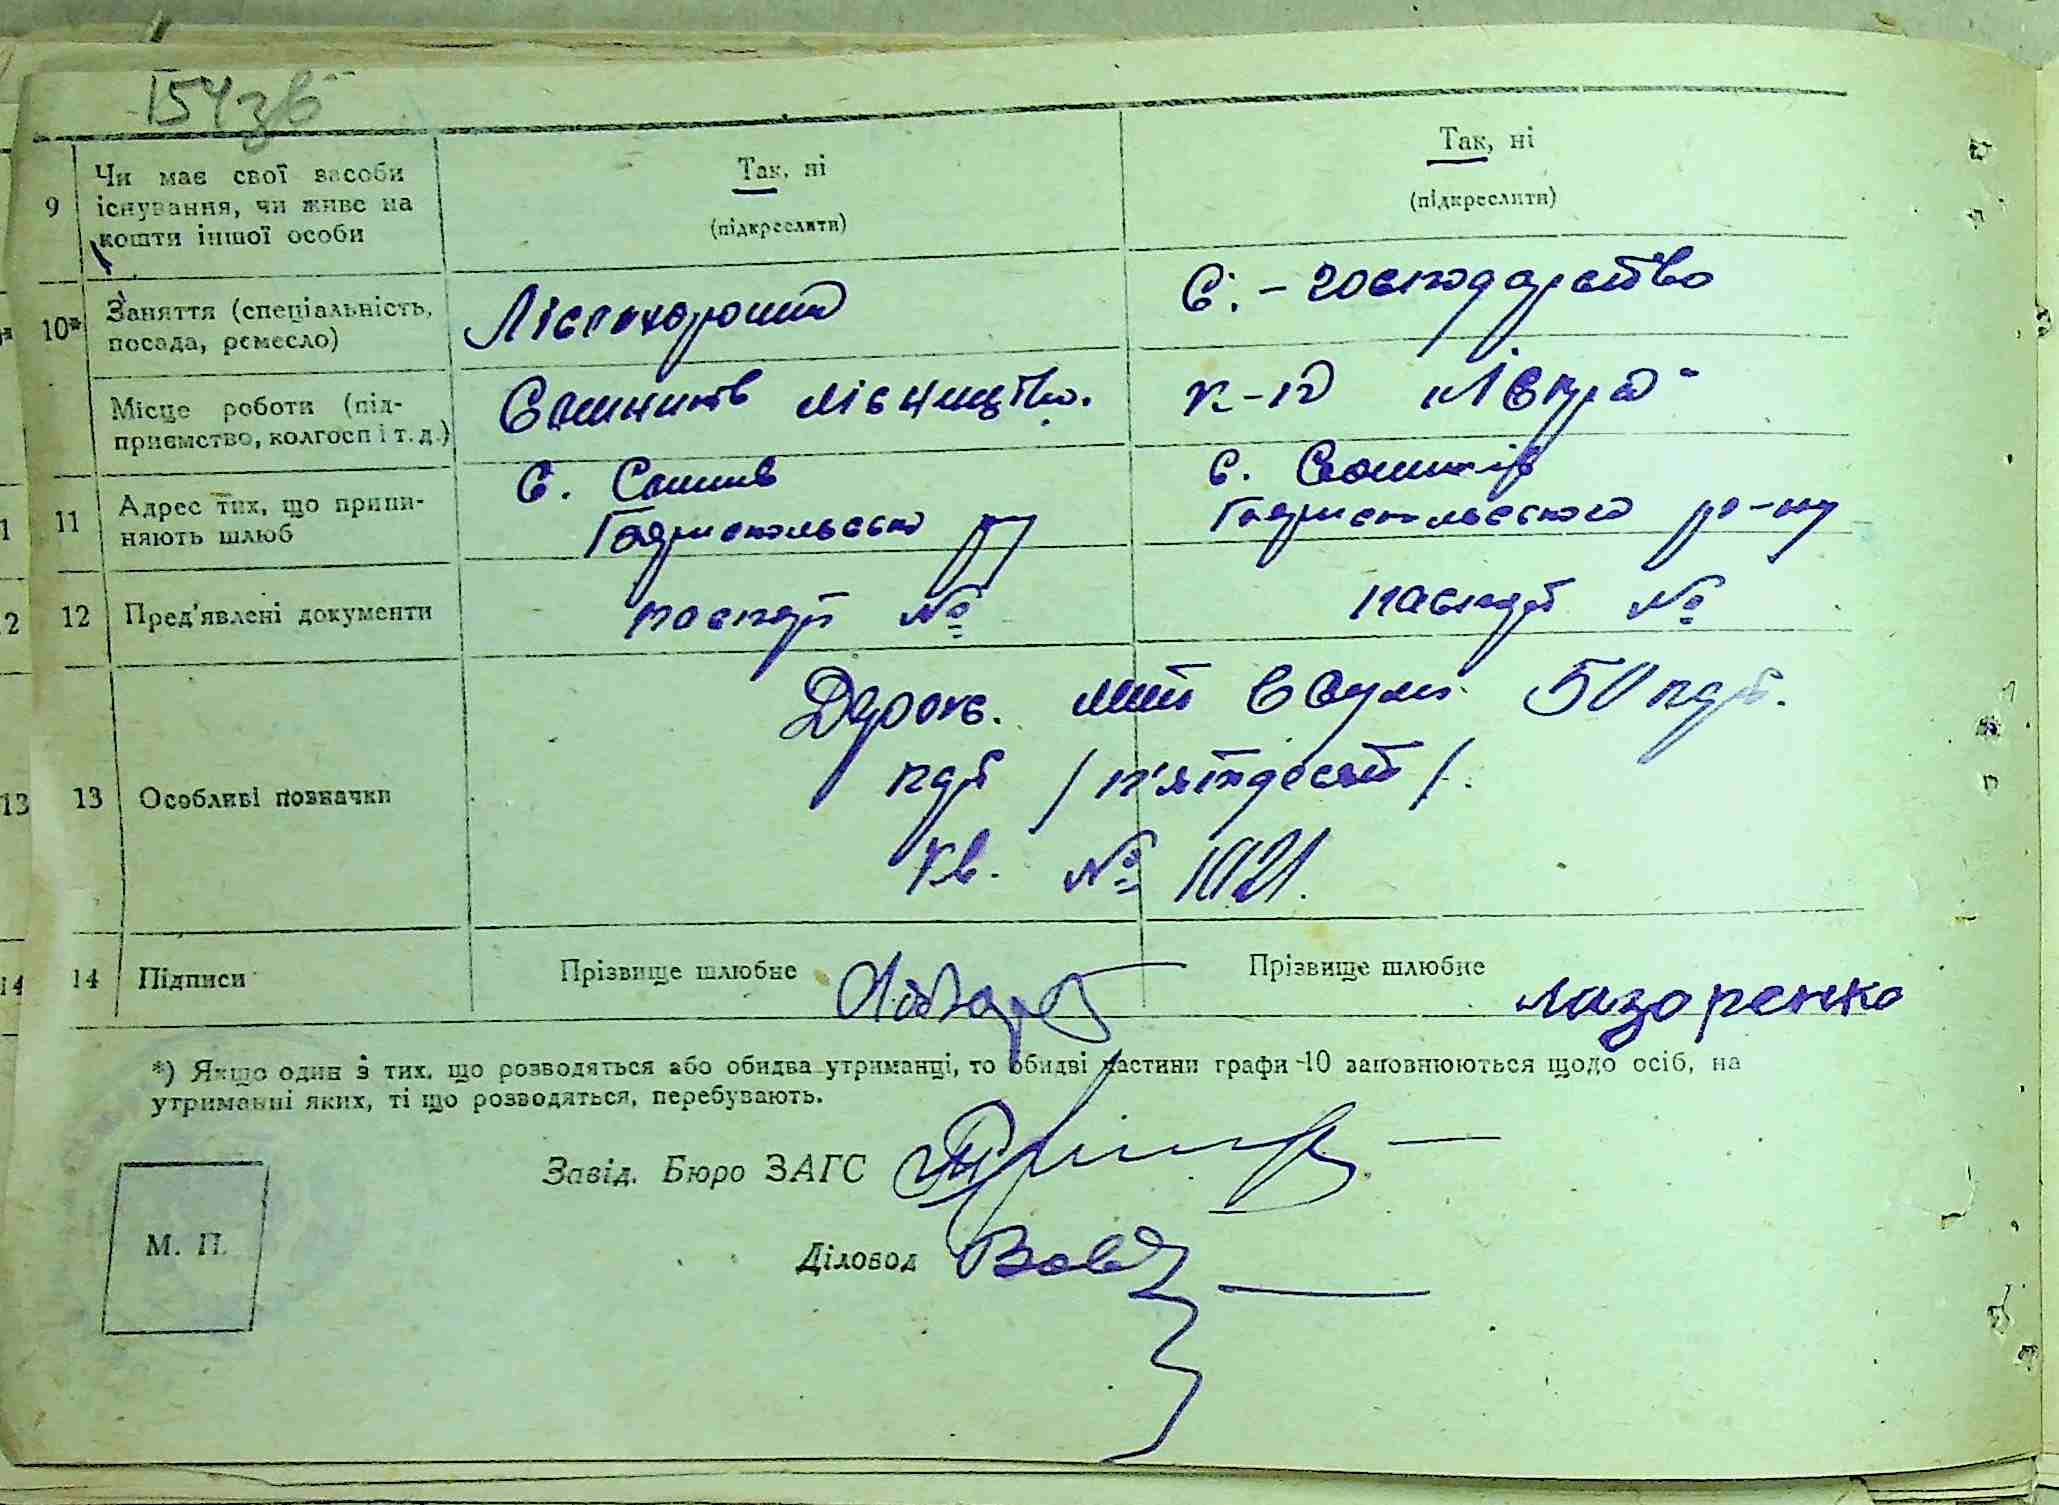 154зв
9 Чи має свої засоби Так, ні Так, ні
існування, чи живе на
кошти іншої особи (підкреслити) (підкреслити)
10* Заняття (спеціальність, Лісоохорона С.-господарство
посада, ремесло)
Місце роботи (під- лісництво. к-п „Іскра"
приємство, колгосп і т. д.)
11 Адрес тих, що припи- с. с.
няють шлюб р-ну
12 Пред'явлені документи паспорт № паспорт №
Держ. мит в сумі 50 карб.
карб /п'ятдесят/.
13 Особливі позначки
кв. № 1021.
14 Підписи Прізвище шлюбне Прізвище шлюбне Лазоренко
*) Якщо один з тих, що розводяться або обидва утриманці, то обидві частини графи 10 заповнюються щодо осіб, на
утриманні яких, ті що розводяться, перебувають.
Завід. Бюро ЗАГС
М. П.
Діловод
11
12
13
14